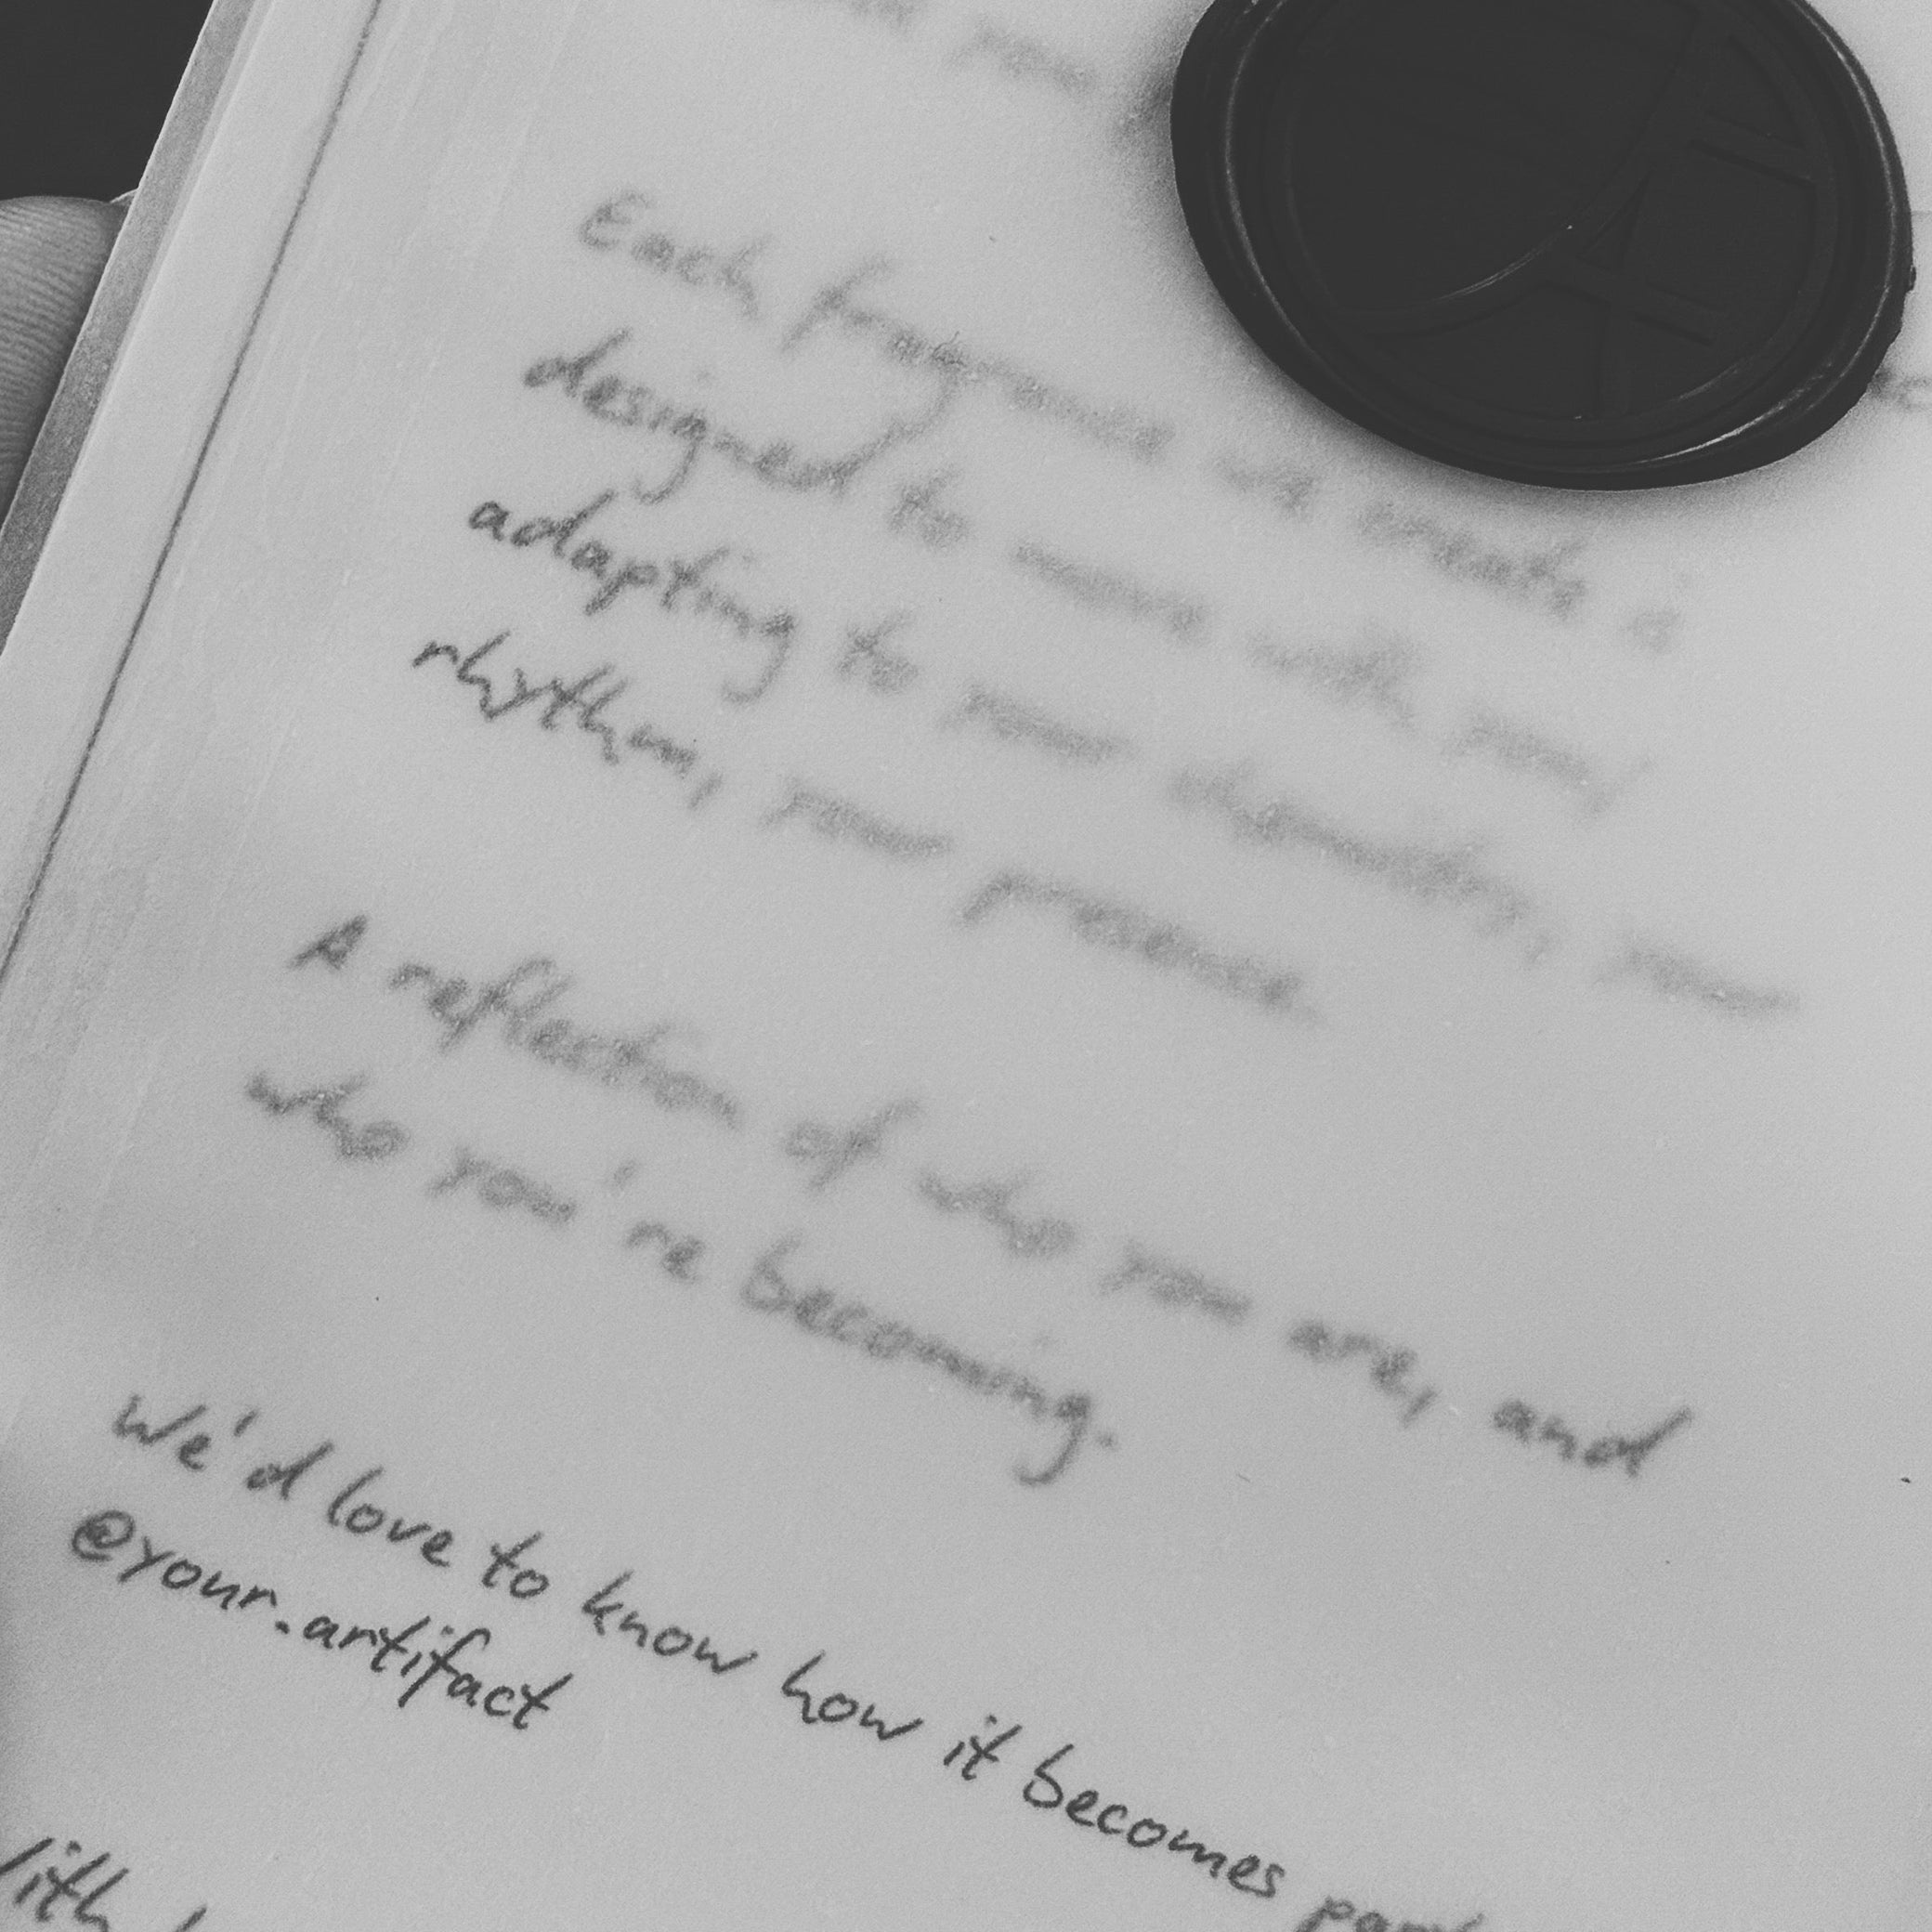 you
Each fragrance we create is
designed to move with you,
adapting to your chemistry, your
rhythm, your presence.
A reflection of who you are, and
who you're becoming.
We'd love to know how it becomes part
@your.artifact